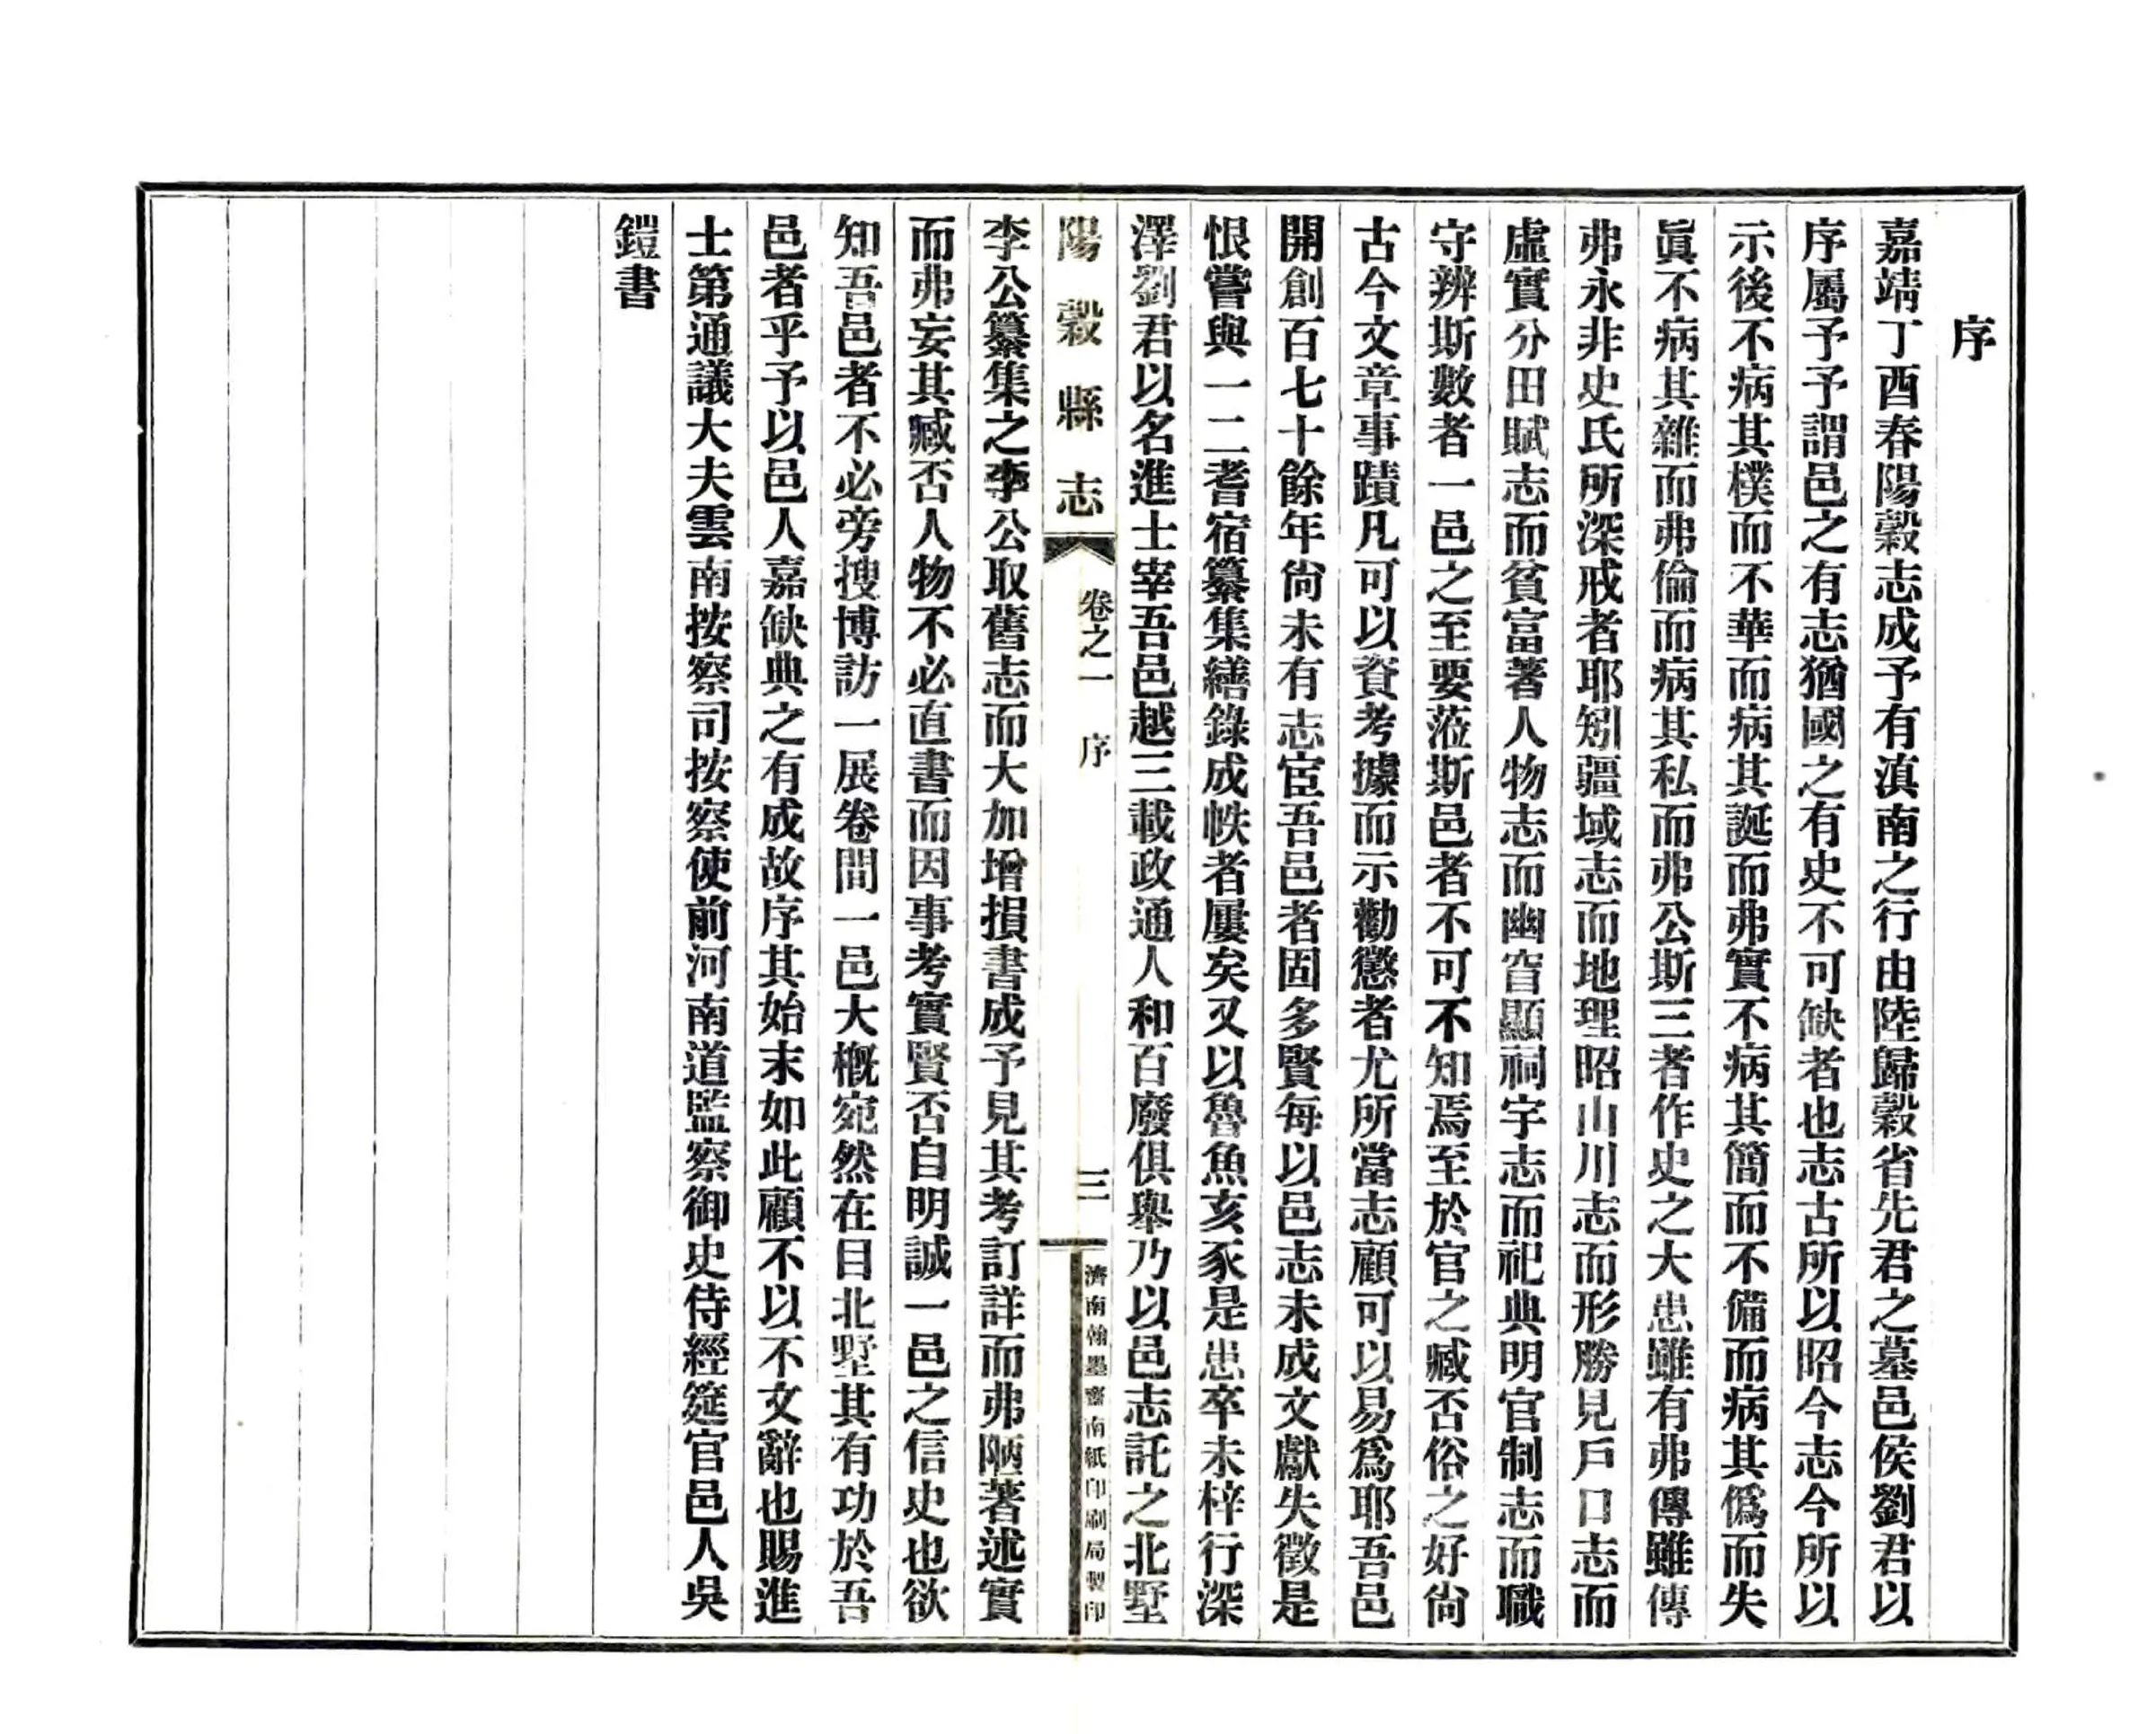 序
嘉靖丁酉春陽穀志成予有滇南之行由陸歸穀省先君之墓邑侯劉君以
序屬予予謂邑之有志猶國之有史不可缺者也志古所以昭今志今所以
示後不病其樸而不華而病其誕而弗實不病其簡而不備而病其僞而失
眞不病其雜而弗倫而病其私而弗公斯三者作史之大患雖有弗傳雖傳
弗永非史氏所深戒者耶矧疆域志而地理昭山川志而形勝見戶口志而
虛實分田賦志而貧富著人物志而幽窅顯祠宇志而祀典明官制志而職
守辨斯數者一邑之至要蒞斯邑者不可不知焉至於官之臧否俗之好尙
古今文章事蹟凡可以資考據而示勸懲者尤所當志顧可以易爲耶吾邑
開創百七十餘年尙未有志宦吾邑者固多賢每以邑志未成文獻失徵是
恨嘗與一二耆宿纂集繕錄成帙者屢矣又以魯魚亥豕是患卒未梓行深
澤劉君以名進士宰吾邑越三載政通人和百廢俱舉乃以邑志託之北墅
陽穀縣志
卷之一 序
三
濟南翰墨齋南紙印刷局製印
李公纂集之李公取舊志而大加增損書成予見其考訂詳而弗陋著述實
而弗妄其臧否人物不必直書而因事考實賢否自明誠一邑之信史也欲
知吾邑者不必旁搜博訪一展卷間一邑大槪宛然在目北墅其有功於吾
邑者乎予以邑人嘉缺典之有成故序其始末如此顧不以不文辭也賜進
士第通議大夫雲南按察司按察使前河南道監察御史侍經筵官邑人吳
鎧書